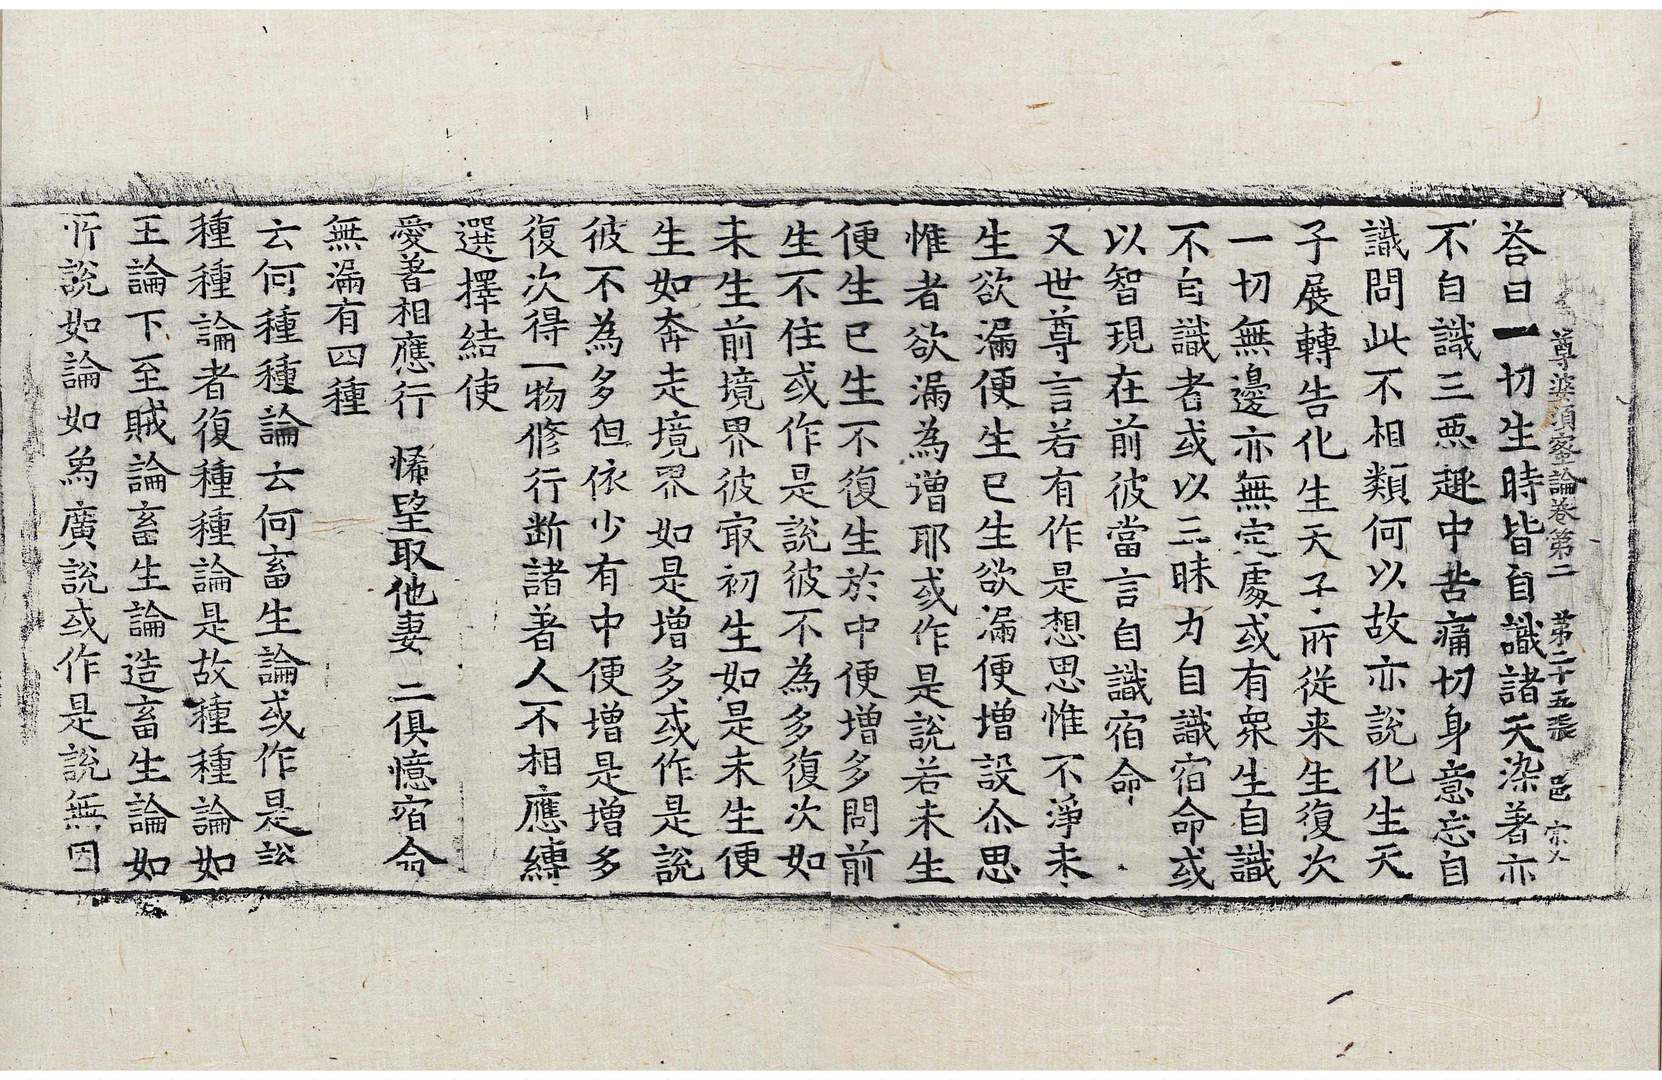 尊婆須蜜論卷第二　第二十五張　邑　宗乂
荅曰一切生時皆自識諸天染著亦
不自識三惡趣中苦痛切身意忘自
識問此不相類何以故亦說化生天
子展轉告化生天子所從来生復次
一切無邊亦無定處或有衆生自識
不自識者或以三昧力自識宿命或
以智現在前彼當言自識宿命
又世尊言若有作是想思惟不淨未
生欲漏便生已生欲漏便增設尒思
惟者欲漏為增耶或作是說若未生
便生已生不復生於中便增多問前
生不住或作是說彼不為多復次如
未生前境界彼㝡初生如是未生便
生如奔走境界如是增多或作是說
彼不為多但依少有中便增是增多
復次得一物修行断諸著人不相應縛
選擇結使
愛著相應行　悕望取他妻　二俱憶宿命
無漏有四種
云何種種論云何畜生論或作是說
種種論者復種種論是故種種論如
王論下至賊論畜生論造畜生論如
所說如論如為廣說或作是說無因